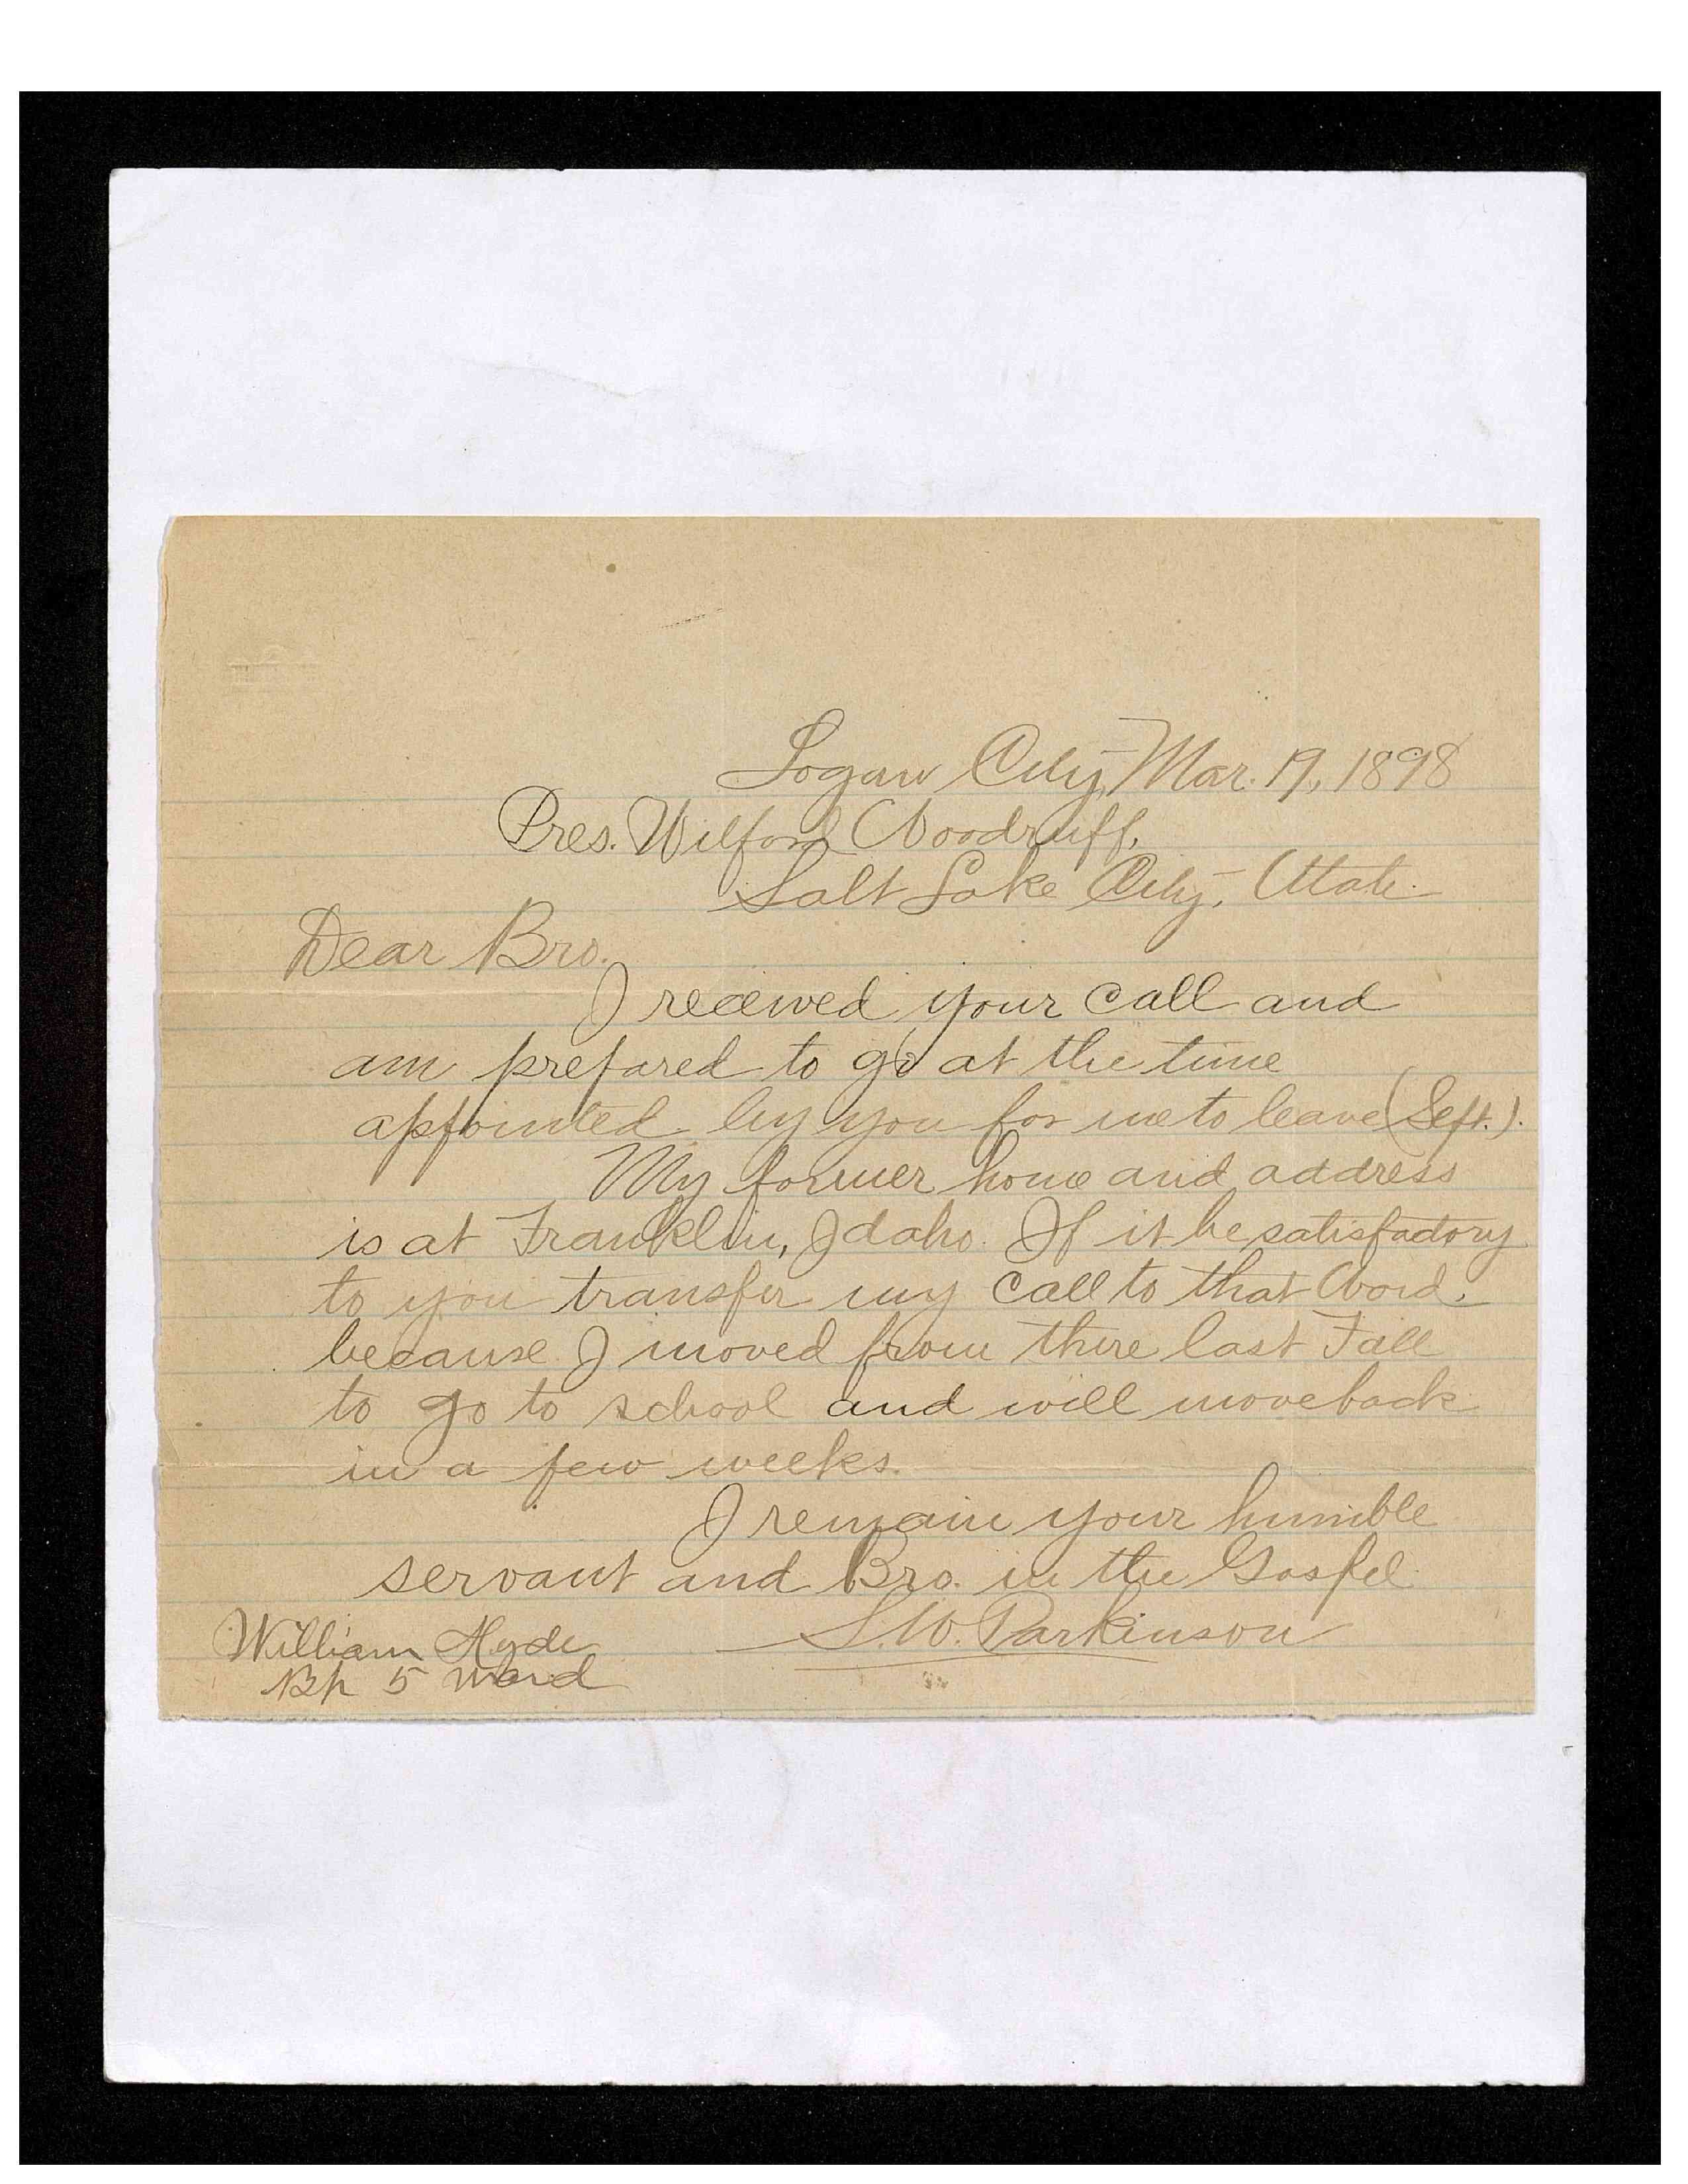 Logan City, Mar. 19, 1898
Pres. Wilford Woodruff,
Salt Lake City, Utah.
Dear Bro.
I received your call and
am prepared to go at the time
appointed by you for me to leave (Sept.).
My former home and address
is at Franklin, Idaho. If it be satisfactory
to you transfer my call to that Ward,
because I moved from there last Fall
to go to school and will move back
in a few weeks.
I remain your humble
servant and Bro. in the Gospel
S. W. Parkinson
William Hyde
Bp 5 Ward